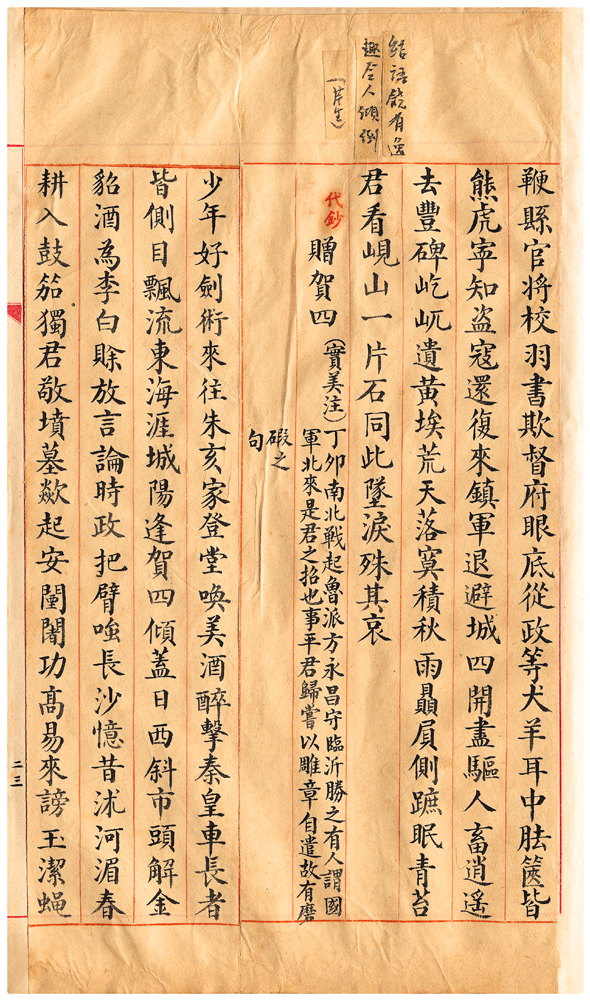 結語饒有逸
趣令人傾倒
鞭縣官將校羽書欺督府眼底從政等犬羊耳中胠篋皆
熊虎寧知盜寇還復來鎮軍退避城四開盡驅人畜逍遙
去豐碑屹屼遺黃埃荒天落寞積秋雨贔屓側蹠眠青苔
君看峴山一片石同此墜淚殊其哀
代鈔
贈賀四
(實美注)丁卯南北戰起魯派方永昌守臨沂勝之有人謂國
軍北來是君之招也事平君歸嘗以雕章自遣故有磨
碬之
句
少年好劍術來往朱亥家登堂喚美酒醉擊秦皇車長者
皆側目飄流東海涯城陽逢賀四傾蓋日西斜市頭解金
貂酒為李白賒放言論時政把臂嗤長沙憶昔沭河湄春
耕入鼓笳獨君敬墳墓歘起安闉闍功高易來謗玉潔蠅
二三